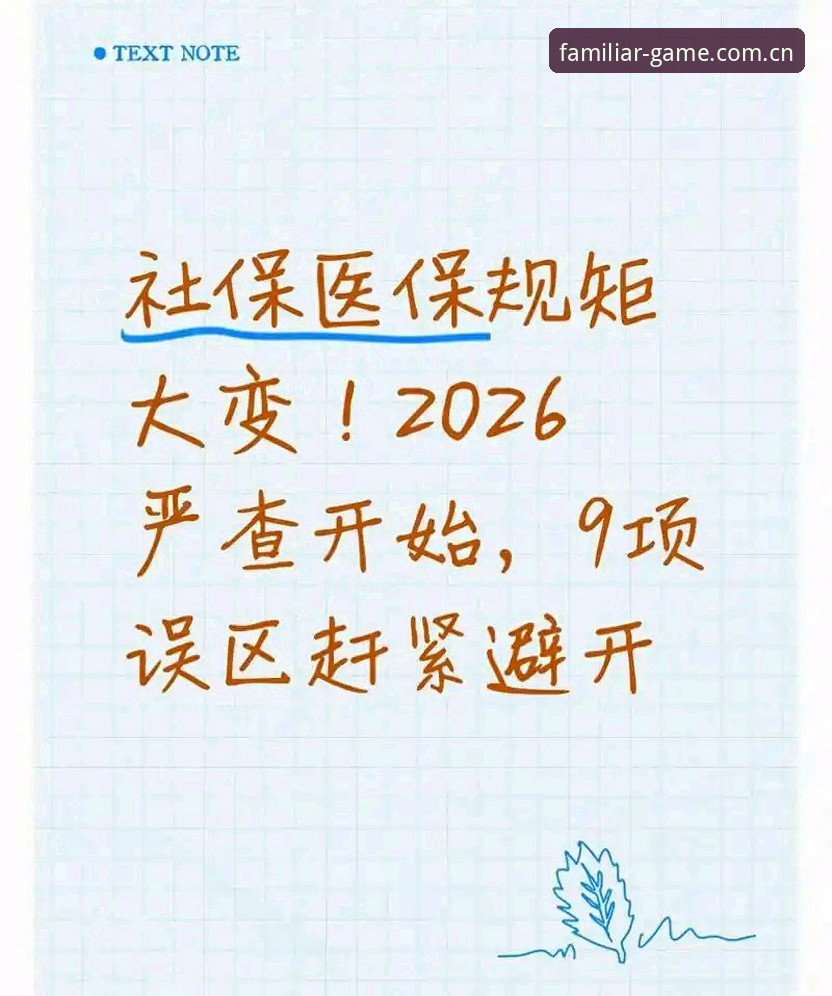 TEXT NOTE
familiar-game.com.cn
社保医保规矩
大变！2026
严查开始，9项
误区赶紧避开